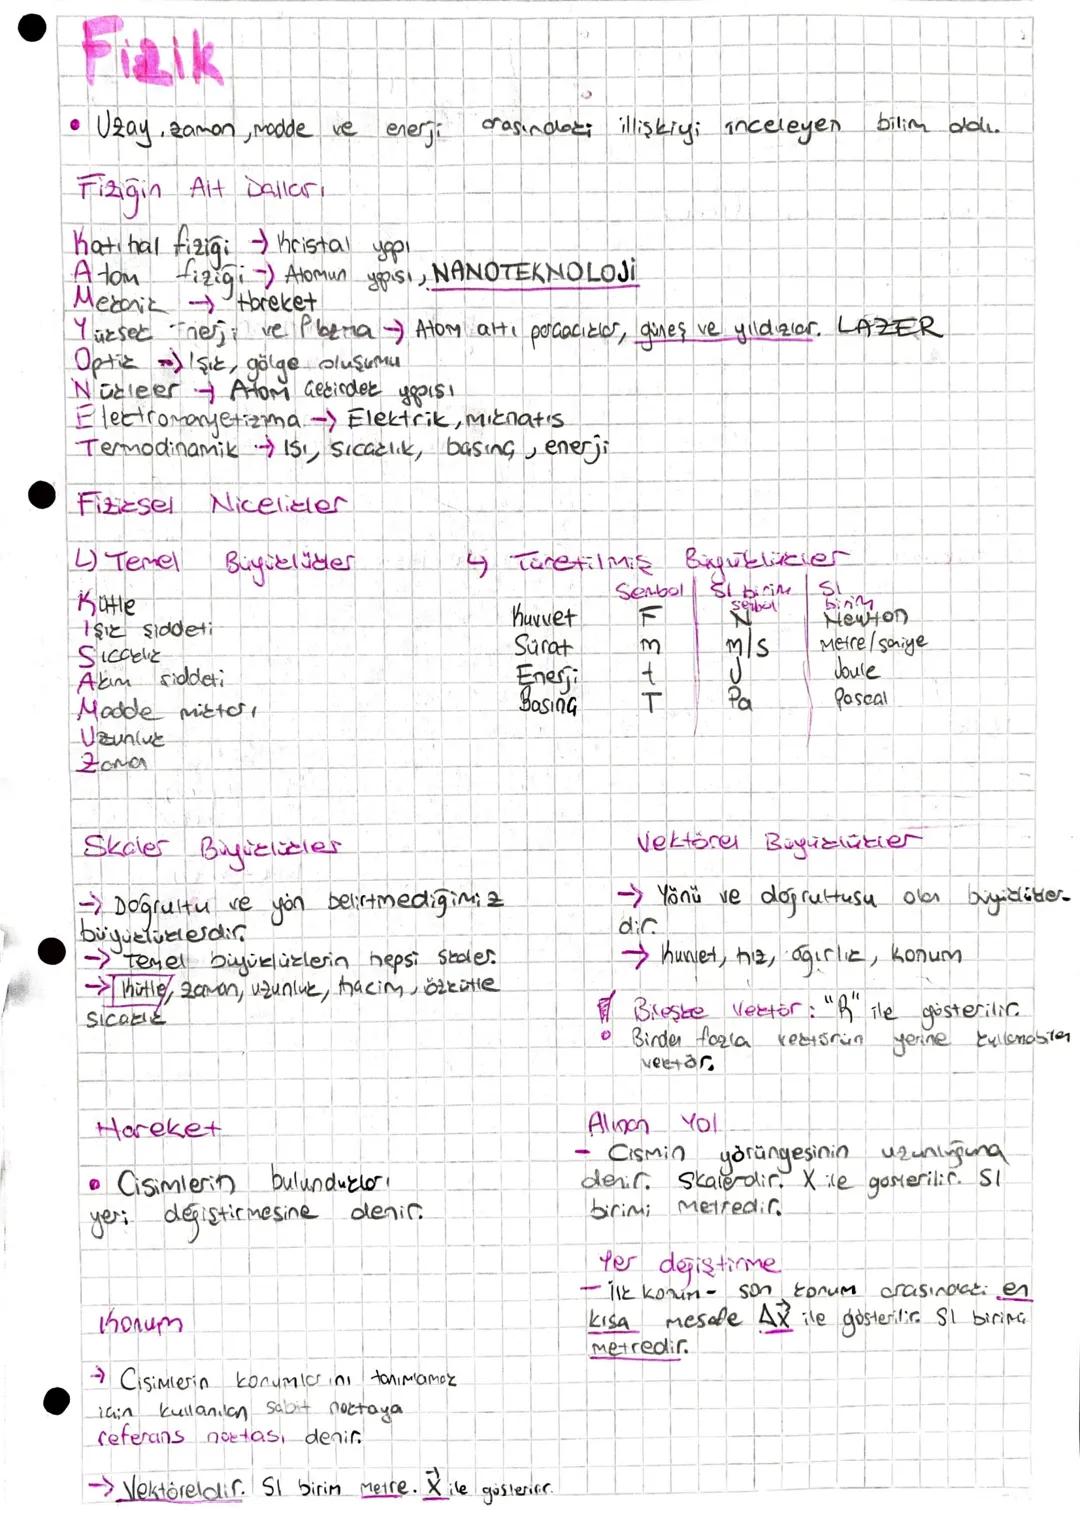 Fizik
• Uzay, zaman, madde ve enerji arasındaki illişkiyi inceleyen bilim dalı.
Fiziğin Alt Dalları
Katıhal fiziği → Kristal yapı
Atom fiziği → Atomun yapısı, NANOTEKNOLOJİ
Mekanik → Hareket
Yüksek Enerji ve Plazma → Atom altı parçacıklar, güneş ve yıldızlar. LAZER
Optik → Işık, gölge oluşumu
Nükleer → Atom çekirdek yapısı
Elektromanyetizma → Elektrik, mıknatıs
Termodinamik → Isı, sıcaklık, basınç, enerji
Fiziksel Nicelikler
↳ Temel Büyüklükler
Kütle
Işık şiddeti
Sıcaklık
Akım şiddeti
Madde miktarı
Uzunluk
Zaman
↳ Türetilmiş Büyüklükler
Sembol SI birim sembol SI birim
Kuvvet F N Newton
Sürat m m/s Metre/saniye
Enerji t J Joule
Basınç T Pa Pascal
Skaler Büyüklükler
→ Doğrultu ve yön belirtmediğimiz
büyüklüklerdir.
→ Temel büyüklüklerin hepsi skaler.
→ Kütle, zaman, uzunluk, hacim, özkütle
sıcaklık
Vektörel Büyüklükler
→ Yönü ve doğrultusu olan büyüklükler-
dir.
→ Kuvvet, hız, ağırlık, konum
Bileşke Vektör: "R" ile gösterilir.
• Birden fazla vektörün yerine kullanabilen
vektör.
Hareket
• Cisimlerin bulundukları
yeri değiştirmesine denir.
Alınan Yol
- Cismin yörüngesinin uzunluğuna
denir. Skalerdir. X ile gösterilir. SI
birimi metredir.
Yer değiştirme
- İlk konum - son konum arasındaki en
kısa mesafe Δx⃗ ile gösterilir. SI birimi
metredir.
Konum
→ Cisimlerin konumlarını tanımlamak
için kullanılan sabit noktaya
referans noktası denir.
→ Vektöreldir. SI birim metre. X⃗ ile gösterilir.